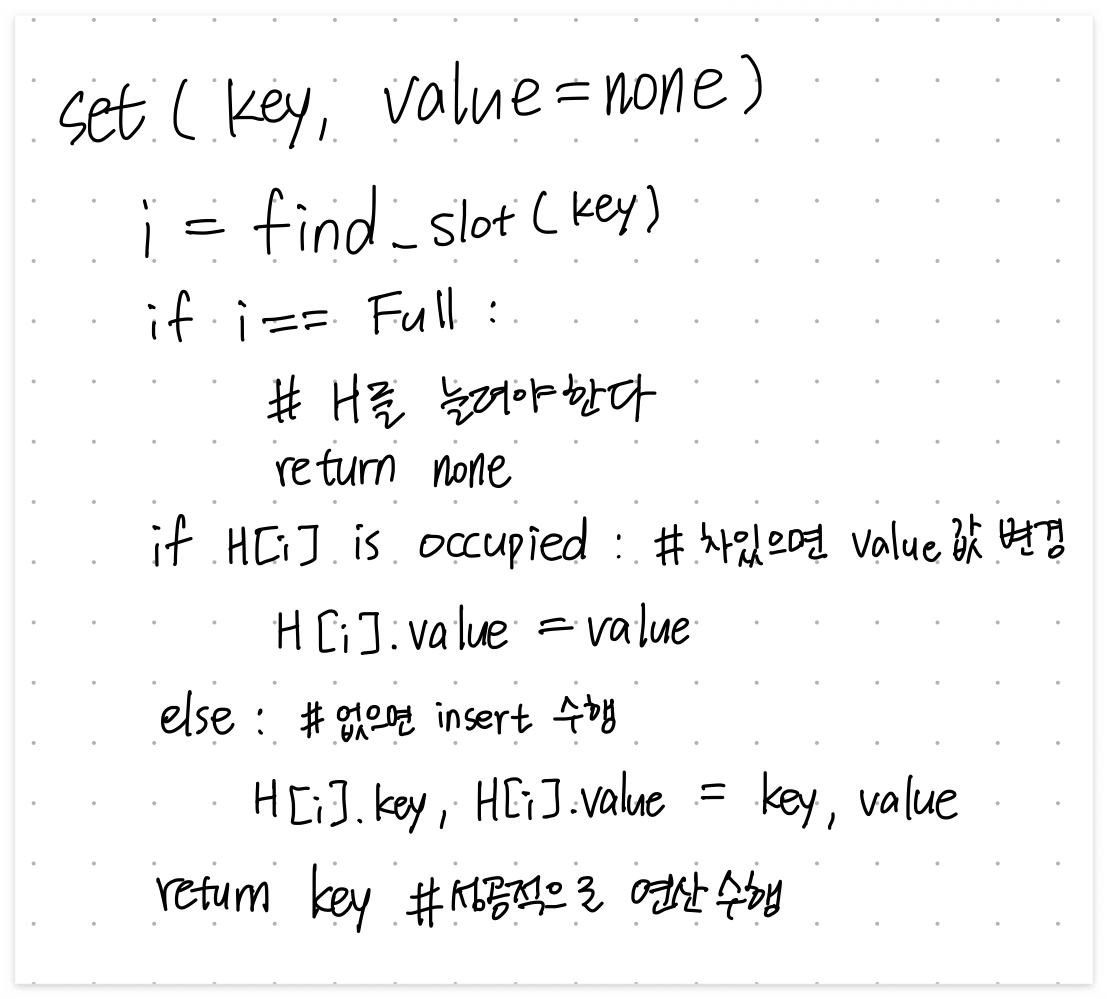 set ( key, value=none )
i = find_slot ( key )
if i == Full :
# H를 늘려야한다
return none
if H[i] is occupied : # 차있으면 value값 변경
H[i].value = value
else : #없으면 insert 수행
H[i].key, H[i].value = key, value
return key #성공적으로 연산수행